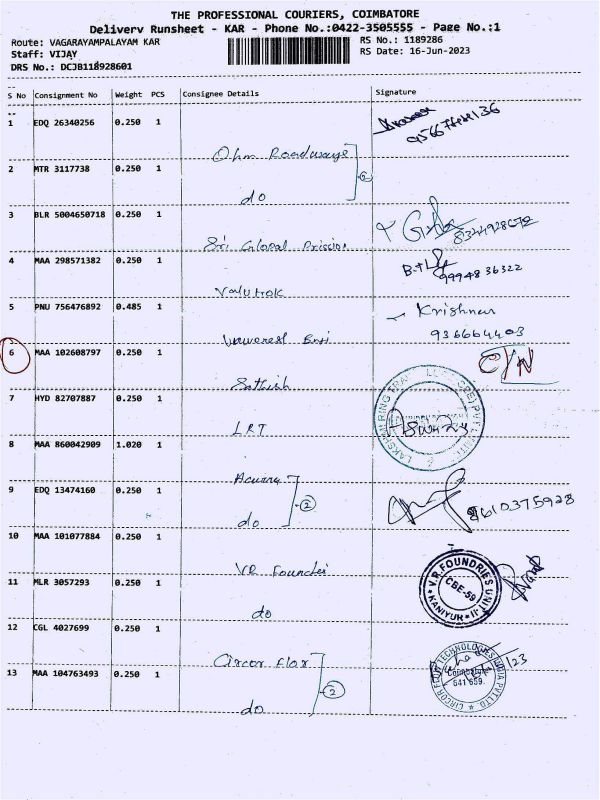 THE PROFESSIONAL COURIERS, COIMBATORE
Delivery Runsheet - KAR - Phone No.:0422-3505555 - Page No.:1
Route: VAGARAYAMPALAYAM KAR
RS No.: 1189286
Staff: VIJAY
RS Date: 16-Jun-2023
DRS No.: DCJB118928601
S No Consignment No Weight PCS Consignee Details Signature
1 EDQ 26340256 0.250 1
Ohm Roadways
2 MTR 3117738 0.250 1
do
3 BLR 5004650718 0.250 1
Sri Global
8344928672
4 MAA 298571382 0.250 1
9994836322
Valutrok
5 PNU 756476892 0.485 1
Krishnan
936664403
6 MAA 102608797 0.250 1
Sathish
7 HYD 82707887 0.250 1
LRT
8 MAA 860042909 1.020 1
9 EDQ 13474160 0.250 1
do 2
8610375928
10 MAA 101077884 0.250 1
VR
V.R.FOUNDRIES UNIT II
CBE-59
KANIYUR
11 MLR 3057293 0.250 1
do
12 CGL 4027699 0.250 1
Circor Flow
CIRCOR FLOW TECHNOLOGIES INDIA PVT.LTD.
Coimbatore
641 659.
13 MAA 104763493 0.250 1
2
do